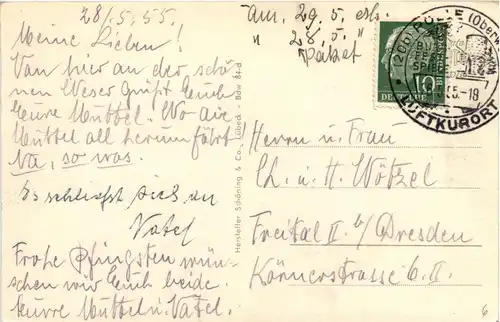 28./5.55.
Meine Lieben!
Von hier an der schö-
nen Weser grüßt Euch
Eure Muttel. Wo die
Muttel all herumfährt
Na, so was.
Es schließt sich an
Vatel
Frohe Pfingsten wün-
schen wir Euch beide.
Eure Muttel u. Vatel.
am. 29. 5. erh.
" 28. 5. "
Paket
Hersteller Schöning & Co., Lübeck
POLLE (Ober
LUFTKURORT
5.-18
10
DEUTSCHE
Herrn u. Frau
Ch. u. H. Wötzel
Freital II b/ Dresden
Körnerstrasse 6. II.
6